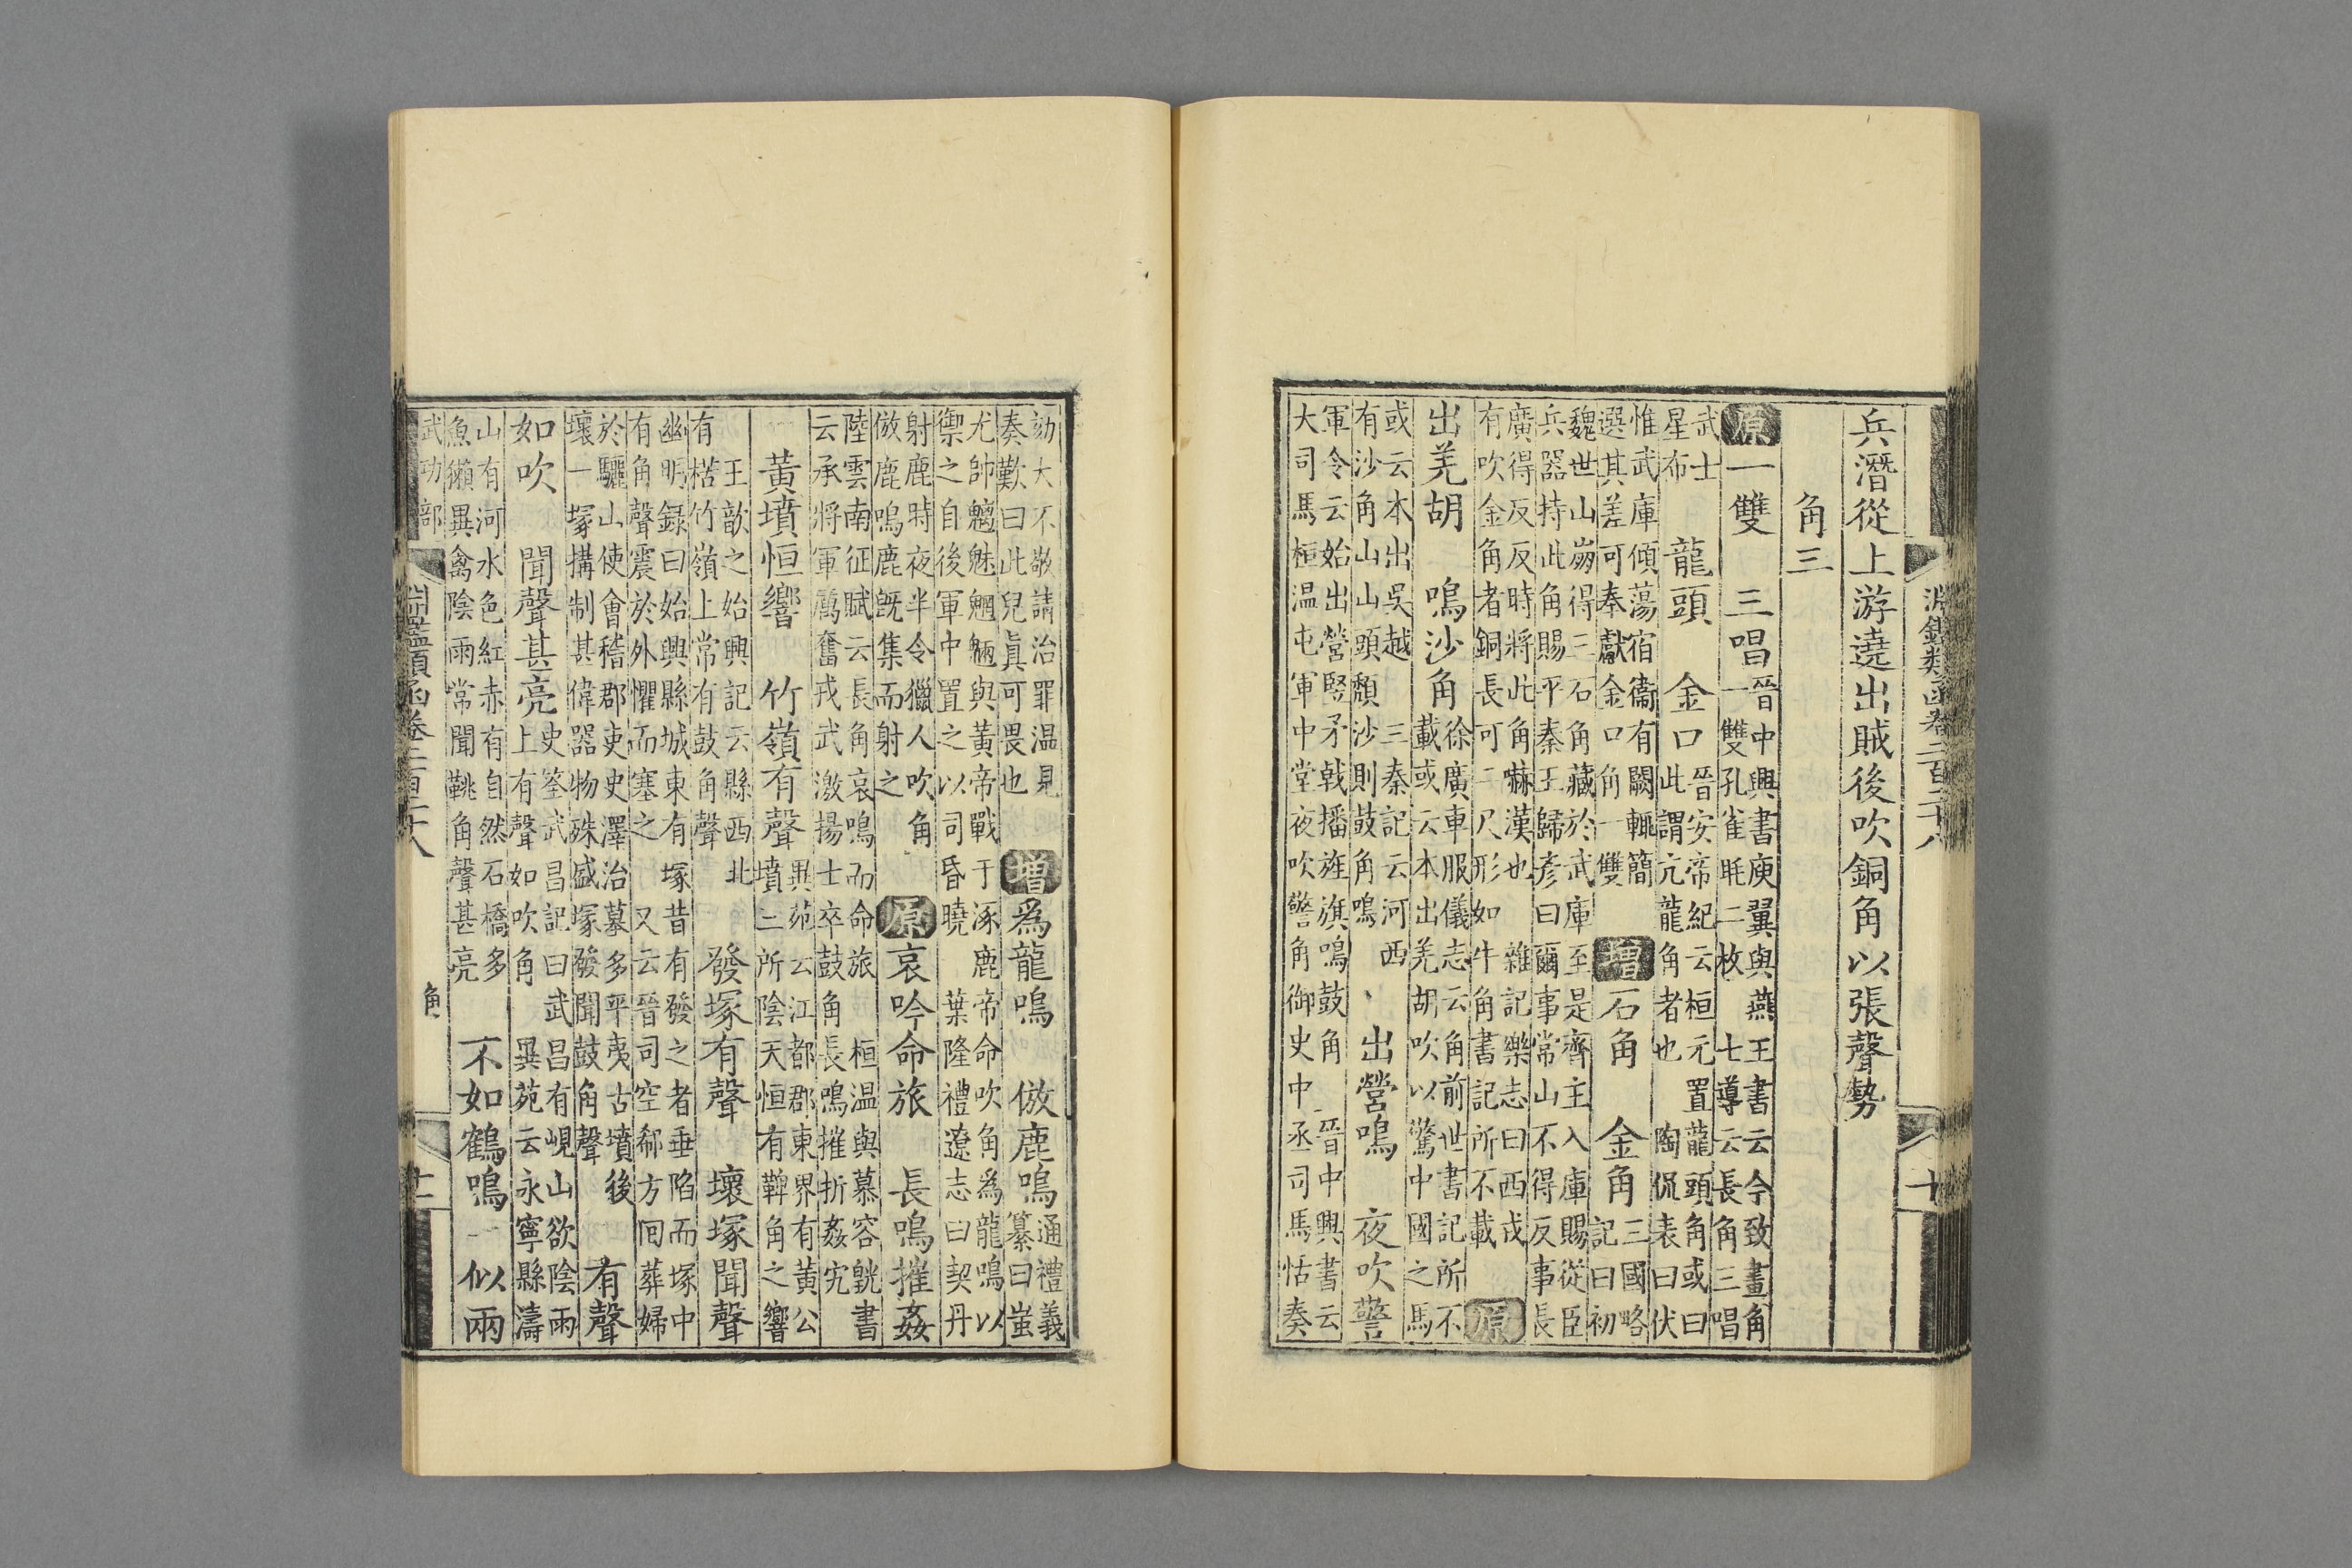 淵鑑類函卷二百二十八
十
兵潛從上游遶出賊後吹銅角以張聲勢
角三
原 一雙 三唱
晉中興書庾翼與燕王書云今致畫角
一雙孔雀毦二枚 七導云長角三唱
武士
星布
龍頭 金口
晉安帝紀云桓元置龍頭角或曰
此謂亢龍角者也 陶侃表曰伏
惟武庫傾蕩宿衞有闕輒簡
選其差可奉獻金口角一雙
增 石角 金角
三國略
記曰初
魏世山崩得三石角藏於武庫至是齊主入庫賜從臣
兵器持此角賜平秦王歸彥曰爾事常山不得反事長
廣得反反時將此角嚇漢也 雜記樂志曰西戎
有吹金角者銅長可二尺形如牛角書記所不載
原
出羌胡 鳴沙角
徐廣車服儀志云角前世書記所不
載或云本出羌胡吹以驚中國之馬
或云本出吳越 三秦記云河西
有沙角山山頭頹沙則鼓角鳴
出營鳴 夜吹警
軍令云始出營竪矛戟播旌旗鳴鼓角 晉中興書云
大司馬桓温屯軍中堂夜吹警角御史中丞司馬恬奏
劾大不敬請治罪温見
奏歎曰此兒眞可畏也
增 爲龍鳴 倣鹿鳴
通禮義
纂曰蚩
尤帥魑魅魍魎與黃帝戰于涿鹿帝命吹角爲龍鳴以
禦之自後軍中置之以司昏曉 葉隆禮遼志曰契丹
射鹿時夜半令獵人吹角
倣鹿鳴鹿旣集而射之
原 哀吟命旅 長鳴摧姦
陸雲南征賦云長角哀鳴而命旅 桓温與慕容皝書
云承將軍厲奮戎武激揚士卒鼓角長鳴摧折姦宄
黃墳恒響 竹嶺有聲
異苑云江都郡東界有黃公
墳二所陰天恒有鞞角之響
王歆之始興記云縣西北
有楛竹嶺上常有鼓角聲
發塚有聲 壞塚聞聲
幽明録曰始興縣城東有塚昔有發之者垂陷而塚中
有角聲震於外懼而塞之 又云晉司空郗方囘葬婦
於驪山使會稽郡吏史澤治墓多平夷古墳後
壞一塚搆制甚偉器物殊盛塚發聞鼓角聲
有聲
如吹 聞聲甚亮
史筌武昌記曰武昌有峴山欲陰雨
上有聲如吹角 異苑云永寧縣濤
山有河水色紅赤有自然石橋多
魚獺異禽陰雨常聞鞉角聲甚亮
不如鶴鳴 似兩
武功部
淵鑑類函卷二百二十八
角
十一